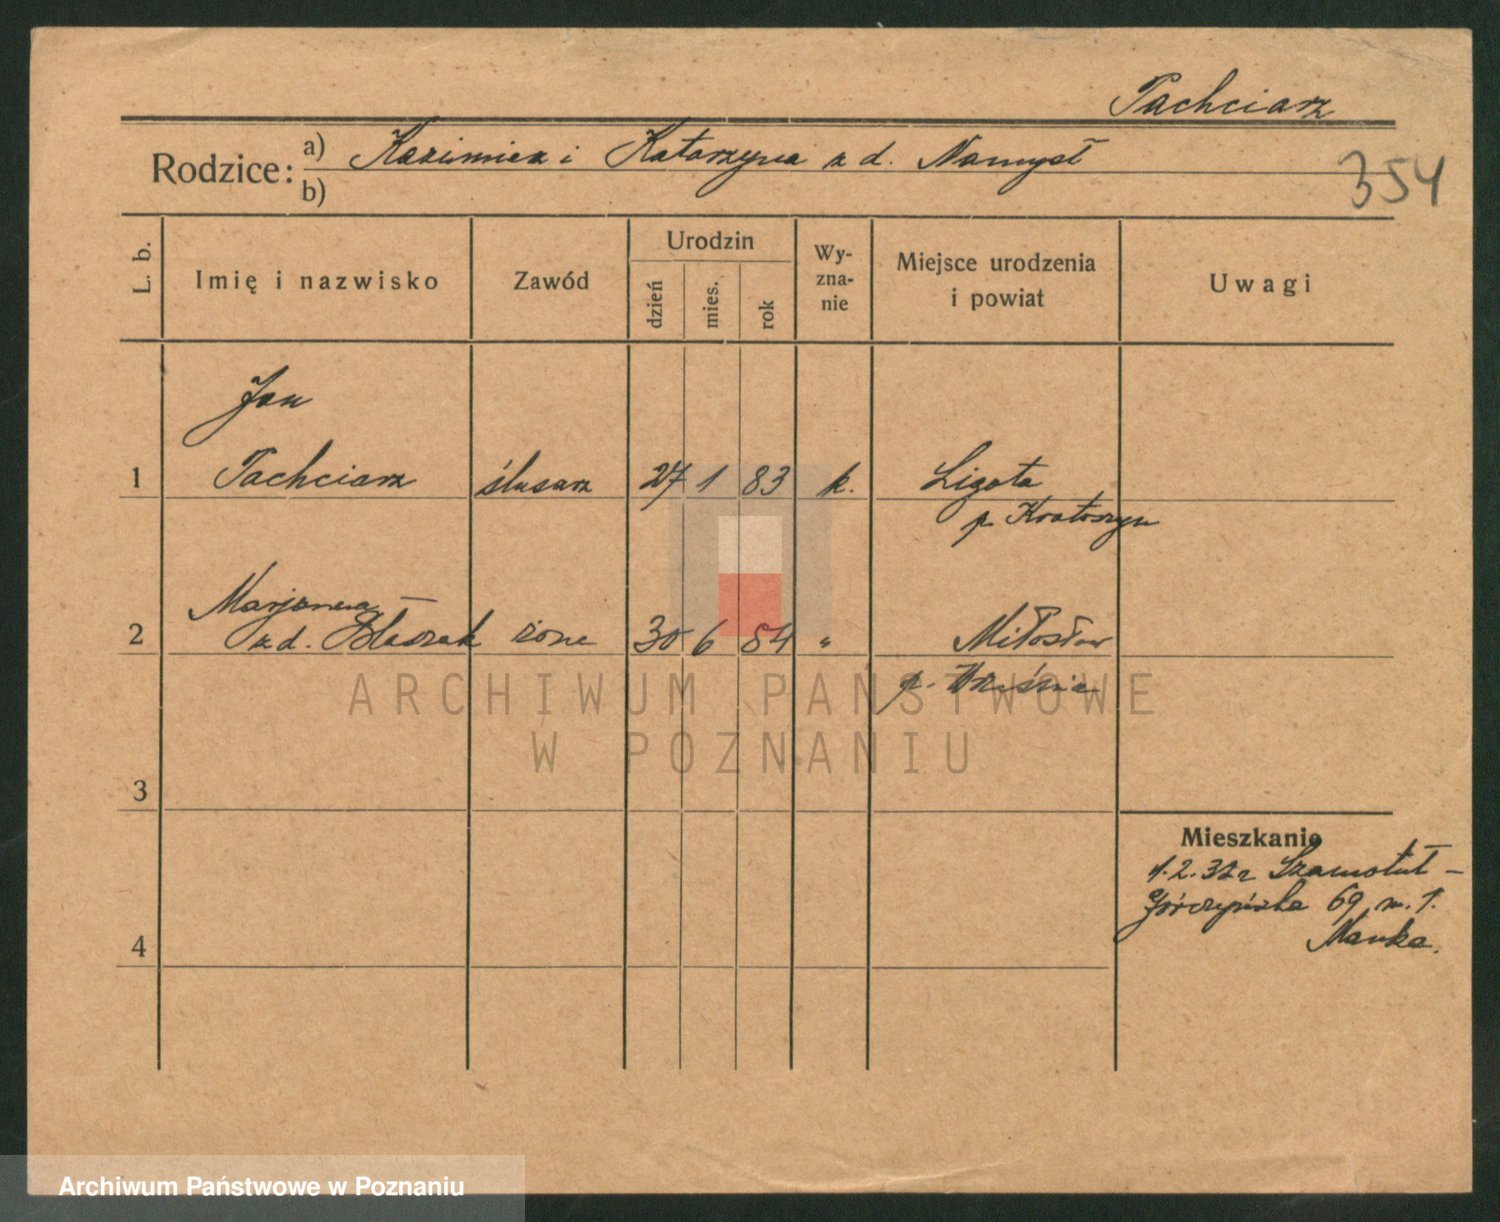 Pachciarz
Rodzice: a) Kazimierz i Katarzyna z d. Namysł
b)
354
L. b.
Imię i nazwisko
Zawód
Urodzin
dzień
mies.
rok
Wy-
zna-
nie
Miejsce urodzenia
i powiat
Uwagi
Jan
1 Pachciarz ślusarz 27 1 83 k. Ligota
p. Krotoszyn
Marjanna
2 z d. Błaszak żona 30 6 84 " Miłosław
p. Września
ARCHIWUM PAŃSTWOWE
W POZNANIU
3
Mieszkanie
1.2.32r Szamotuł-
Górczyńska 69 m. 1.
Manka.
4
Archiwum Państwowe w Poznaniu